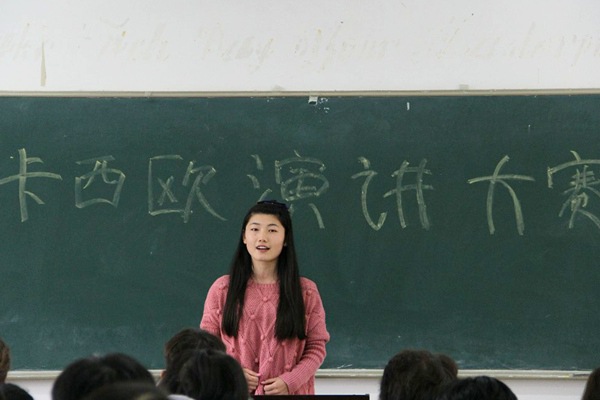 卡西欧演讲大赛